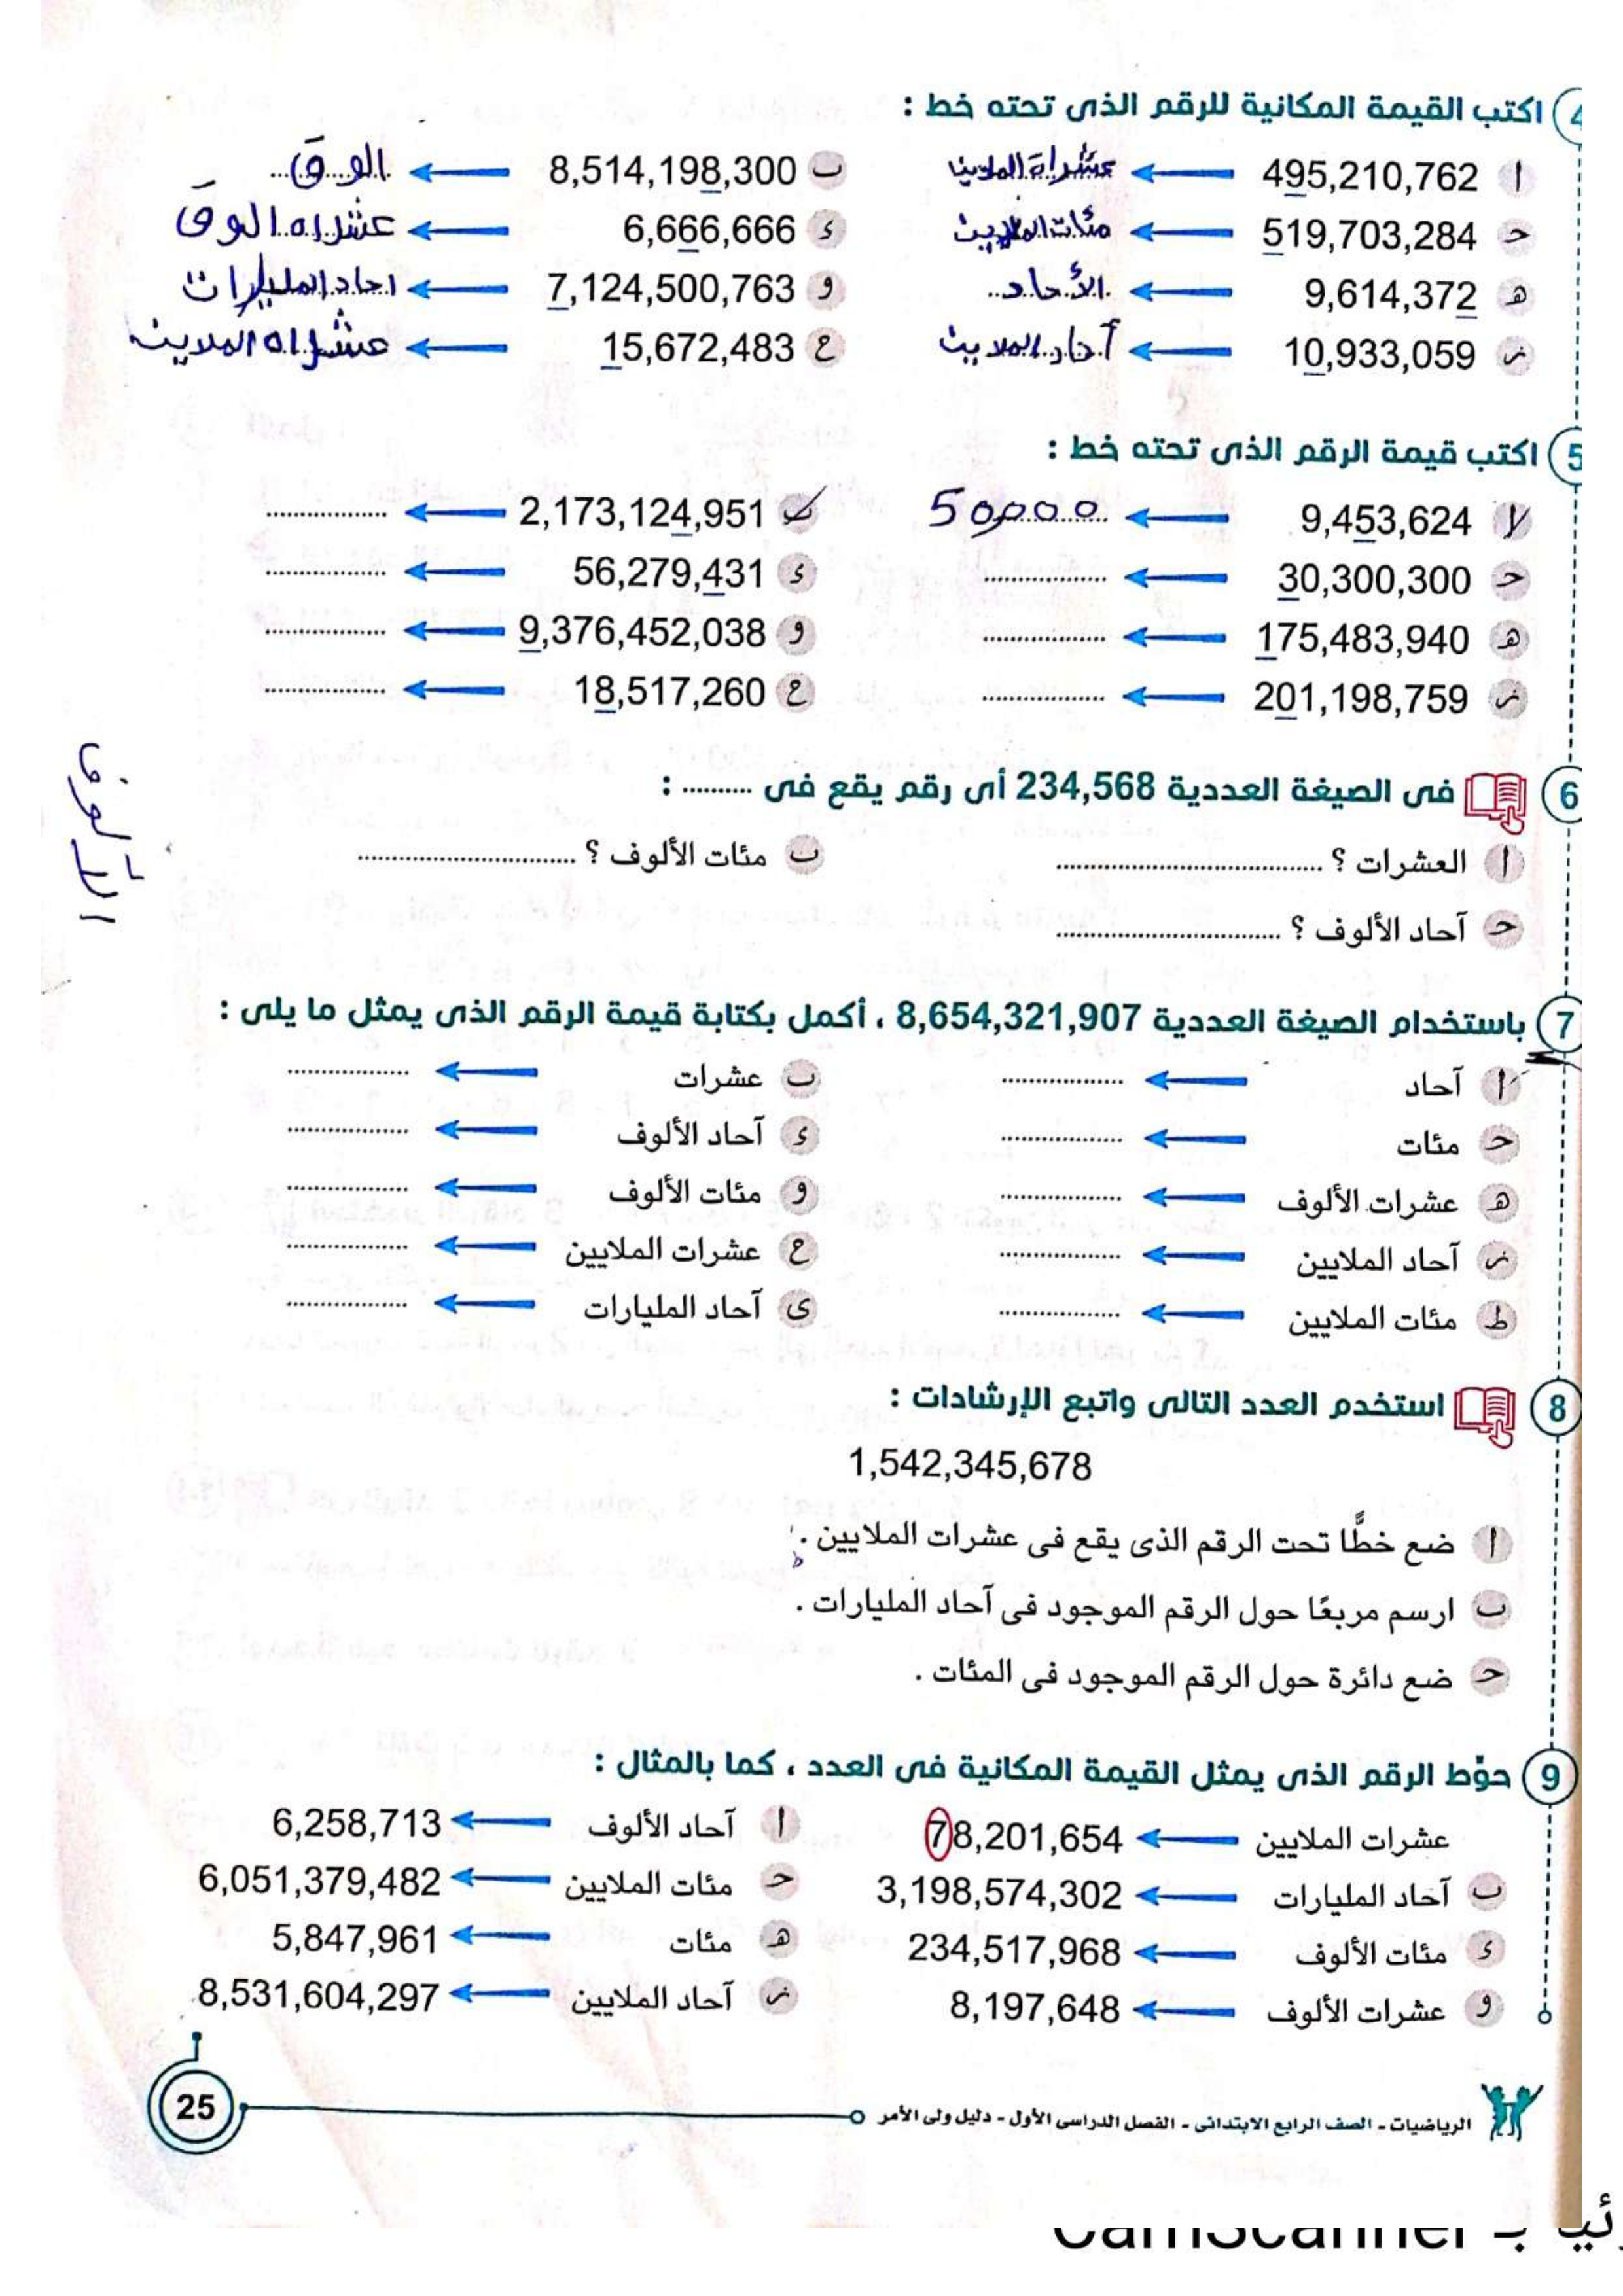 4 اكتب القيمة المكانية للرقم الذى تحته خط :
ا 495,210,762 عشرات الملايين ب 8,514,198,300 الوف
ح 519,703,284 مئات الملايين ء 6,666,666 عشراه الوف
هـ 9,614,372 الأحاد و 7,124,500,763 احاد المليارات
ز 10,933,059 آحاد الملايين ح 15,672,483 عشراه الملاين
5 اكتب قيمة الرقم الذى تحته خط :
ا 9,453,624 50,000 ب 2,173,124,951 ................
ح 30,300,300 ................ ء 56,279,431 ................
هـ 175,483,940 ................ و 9,376,452,038 ................
ز 201,198,759 ................ ح 18,517,260 ................
6 فى الصيغة العددية 234,568 أى رقم يقع فى .......... :
ا العشرات ؟ ................ ب مئات الألوف ؟ ................
ح آحاد الألوف ؟ ................
7 باستخدام الصيغة العددية 8,654,321,907 ، أكمل بكتابة قيمة الرقم الذى يمثل ما يلى :
ا آحاد ................ ب عشرات ................
ح مئات ................ ء آحاد الألوف ................
هـ عشرات الألوف ................ و مئات الألوف ................
ز آحاد الملايين ................ ح عشرات الملايين ................
ط مئات الملايين ................ ى آحاد المليارات ................
8 استخدم العدد التالى واتبع الإرشادات :
1,542,345,678
ا ضع خطًّا تحت الرقم الذى يقع فى عشرات الملايين .
ب ارسم مربعًا حول الرقم الموجود فى آحاد المليارات .
ح ضع دائرة حول الرقم الموجود فى المئات .
9 حوّط الرقم الذى يمثل القيمة المكانية فى العدد ، كما بالمثال :
عشرات الملايين 78,201,654 ا آحاد الألوف 6,258,713
ب آحاد المليارات 3,198,574,302 ح مئات الملايين 6,051,379,482
ء مئات الألوف 234,517,968 هـ مئات 5,847,961
و عشرات الألوف 8,197,648 ز آحاد الملايين 8,531,604,297
الرياضيات - الصف الرابع الابتدائى - الفصل الدراسى الأول - دليل ولى الأمر
25
CamScanner